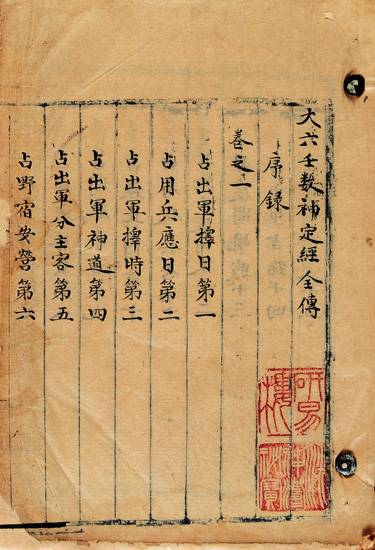 大六壬數補定經全傳
序錄
卷之一
占出軍擇日第一
占用兵應日第二
占出軍擇時第三
占出軍神道第四
占出軍分主客第五
占野宿安營第六
研易樓